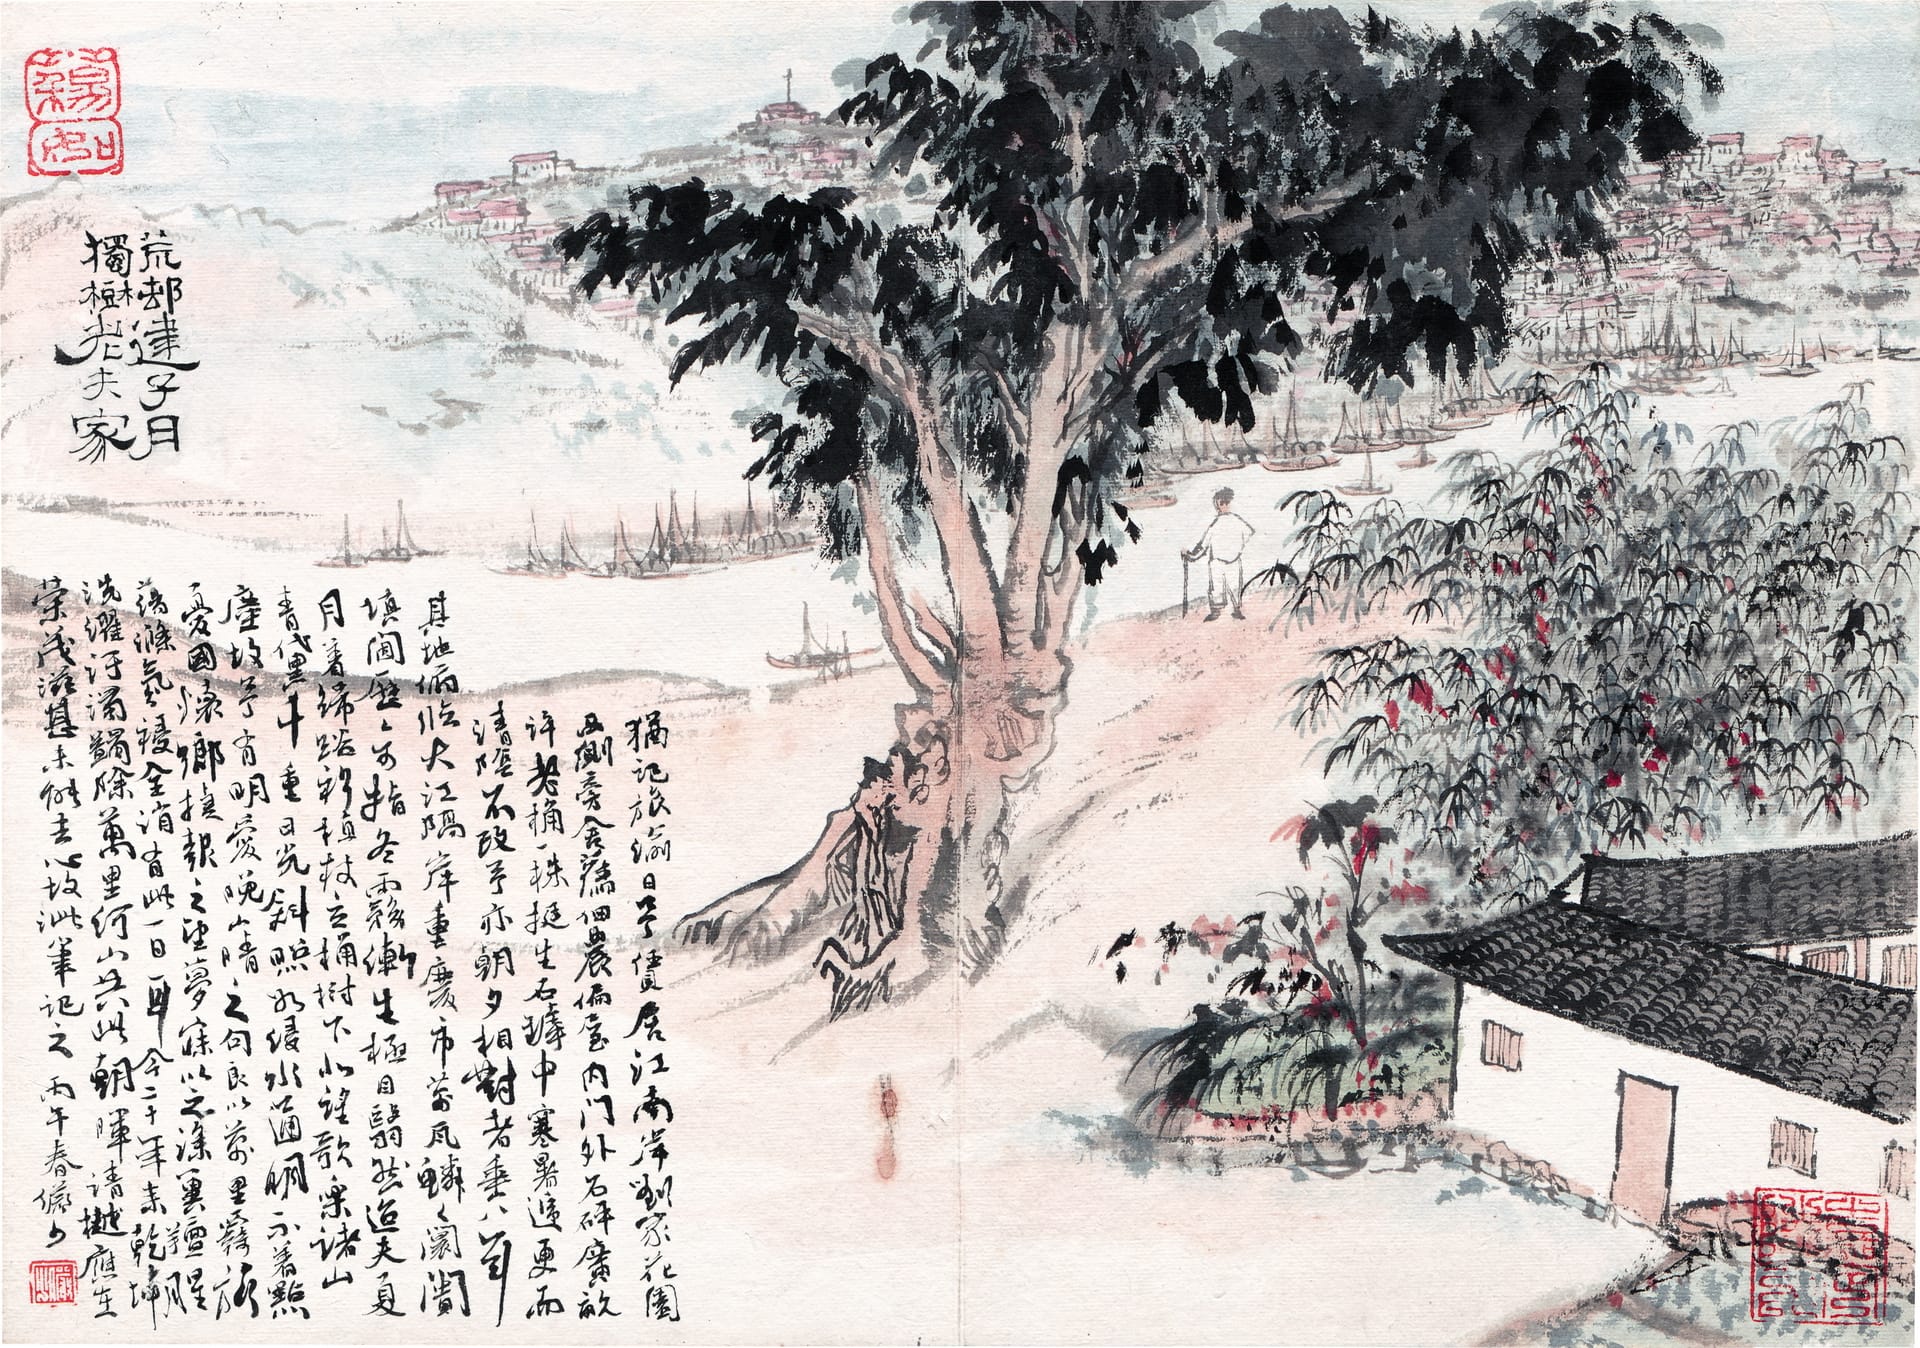 荒邨建子月
獨樹老夫家
猶記旅渝日予賃居江南岸劉家花園
西側旁舍舊佃農偏屋內門外石砰廣畝
許老桷一株挺生石罅中寒暑遞更而
清蔭不改予亦朝夕相對者垂八年
其地俯臨大江隔岸重慶市萬瓦鱗〻闤闠
填闐歷〻可指冬霧漸生極目翳然迨夫夏
月著絺綌植杖立桷樹下北望歌樂諸山
青黛千重日光斜照如浸水涵明不著點
塵故予有明愛晚山晴之句良以萬里羇旅
憂國懷鄉之望夢寐以之滌羶腥
蕩滌氛祲全消有此一日耳今二十年來乾坤
洗濯汙濁蠲除萬里河山共此朝暉清樾應生
榮茂滋甚未能去心故泚筆記之丙午春儼少